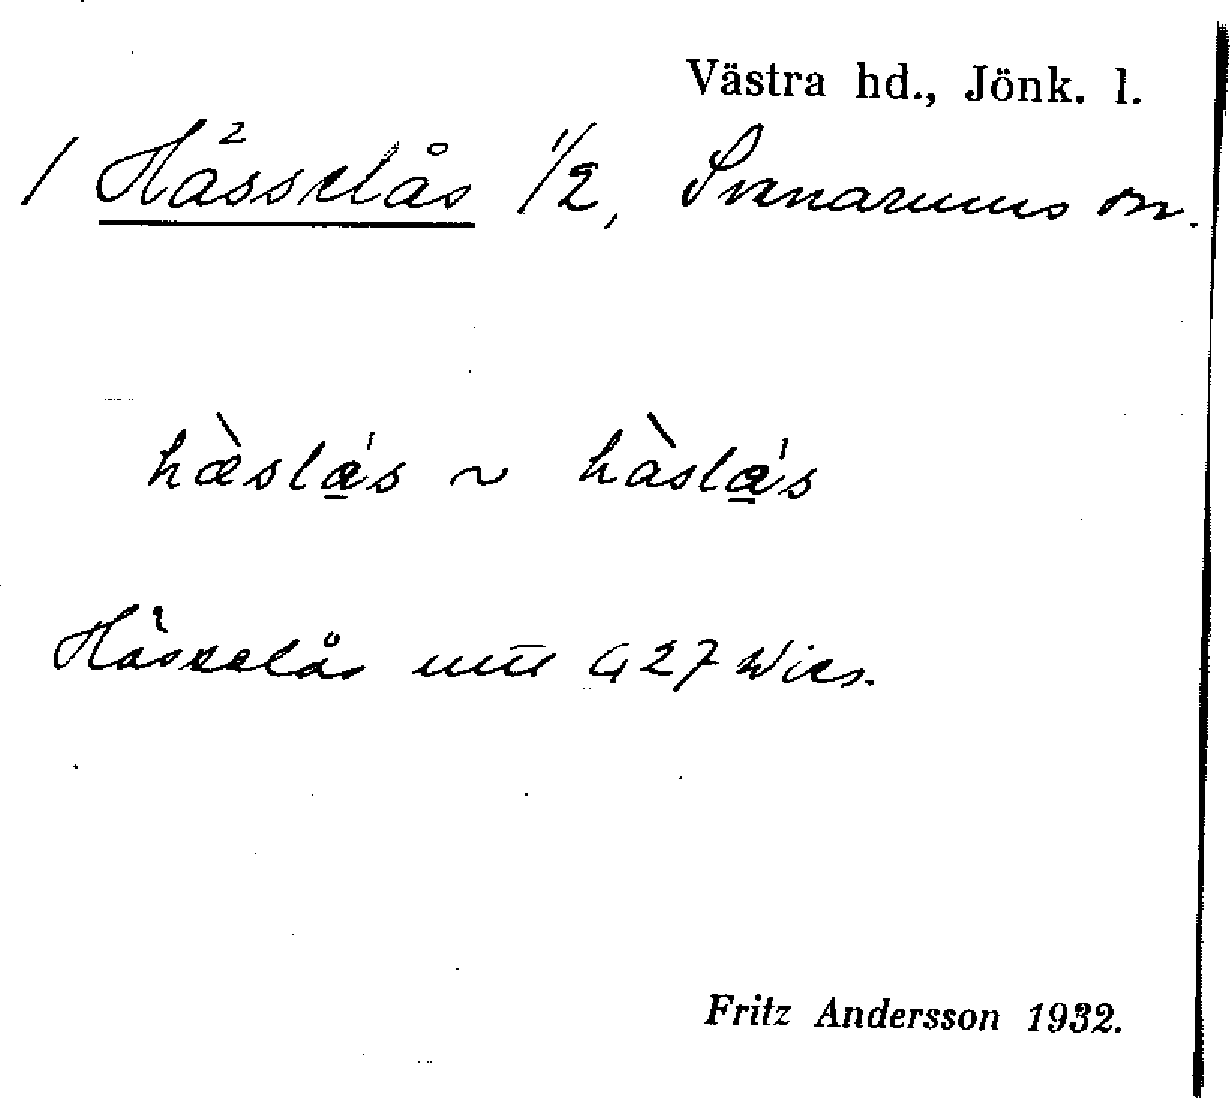 Västra hd., Jönk. l.
/ Hässelås 1/2, Svenarums sn.
hæ̀slǻ̱s ~ hàslǻ̱s
Hässelås 427 Wies.
Fritz Andersson 1932.